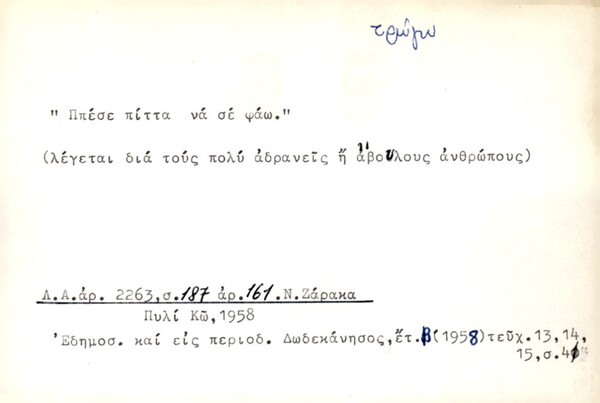 τρώγω
" Ππέσε πίττα νά σέ φάω."
(λέγεται διά τούς πολύ ἀδρανεῖς ἤ ἀβούλους ἀνθρώπους)
Λ.Α.ἀρ. 2263,σ.187 ἀρ.161.Ν.Ζάρακα
Πυλί Κῶ,1958
Ἐδημοσ. καί εἰς περιοδ. Δωδεκάνησος,ἔτ.β(1958)τεῦχ.13,14,
15,σ.